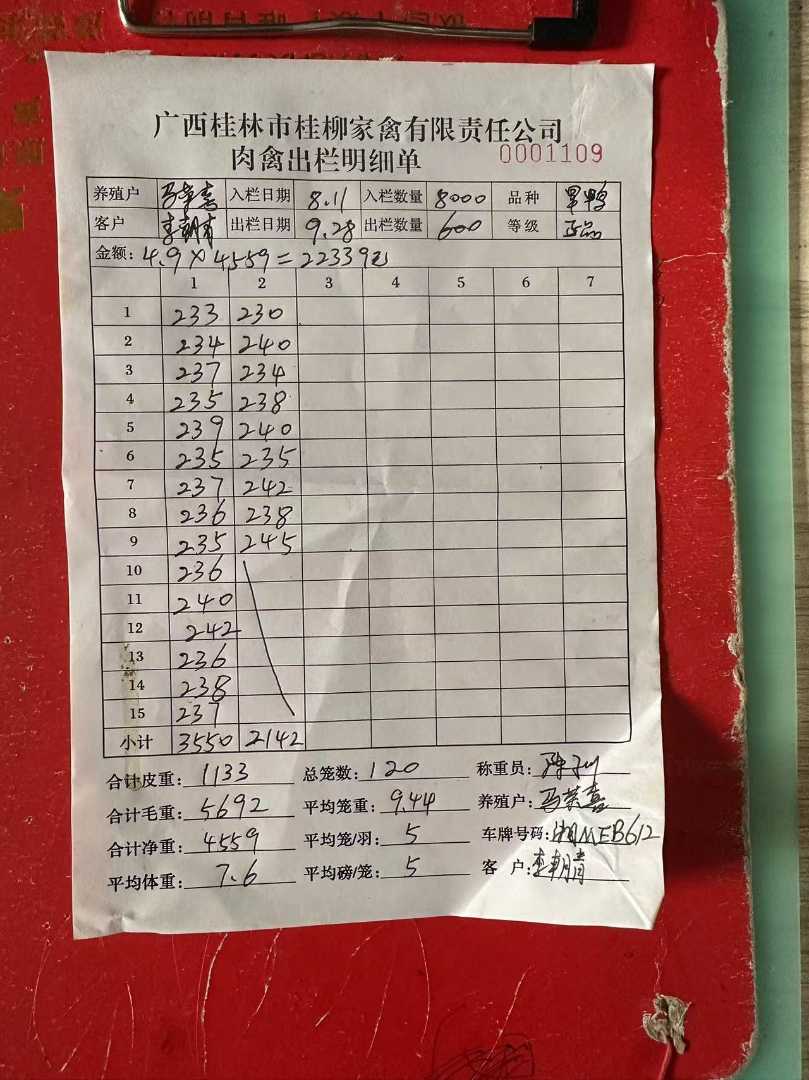 广西桂林市桂柳家禽有限责任公司
肉禽出栏明细单 0001109
养殖户 马荣喜 入栏日期 8.11 入栏数量 8000 品种 旱鸭
客户 李朝青 出栏日期 9.28 出栏数量 600 等级 正品
金额: 4.9×4559=22339元
1 2 3 4 5 6 7
1 233 230
2 234 240
3 237 234
4 235 238
5 239 240
6 235 235
7 237 242
8 236 238
9 235 245
10 236
11 240
12 242
13 236
14 238
15 237
小计 3550 2142
合计皮重: 1133 总笼数: 120 称重员:
合计毛重: 5692 平均笼重: 9.44 养殖户: 马荣喜
合计净重: 4559 平均笼/羽: 5 车牌号码: 湘MEB612
平均体重: 7.6 平均磅/笼: 5 客户: 李朝青